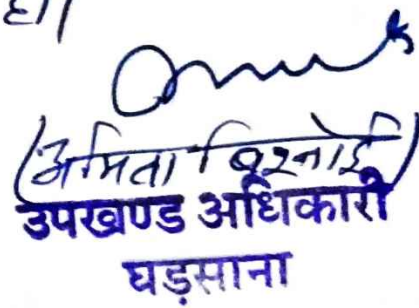 है।
(अमिता बिश्नोई)
उपखण्ड अधिकारी
घड़साना